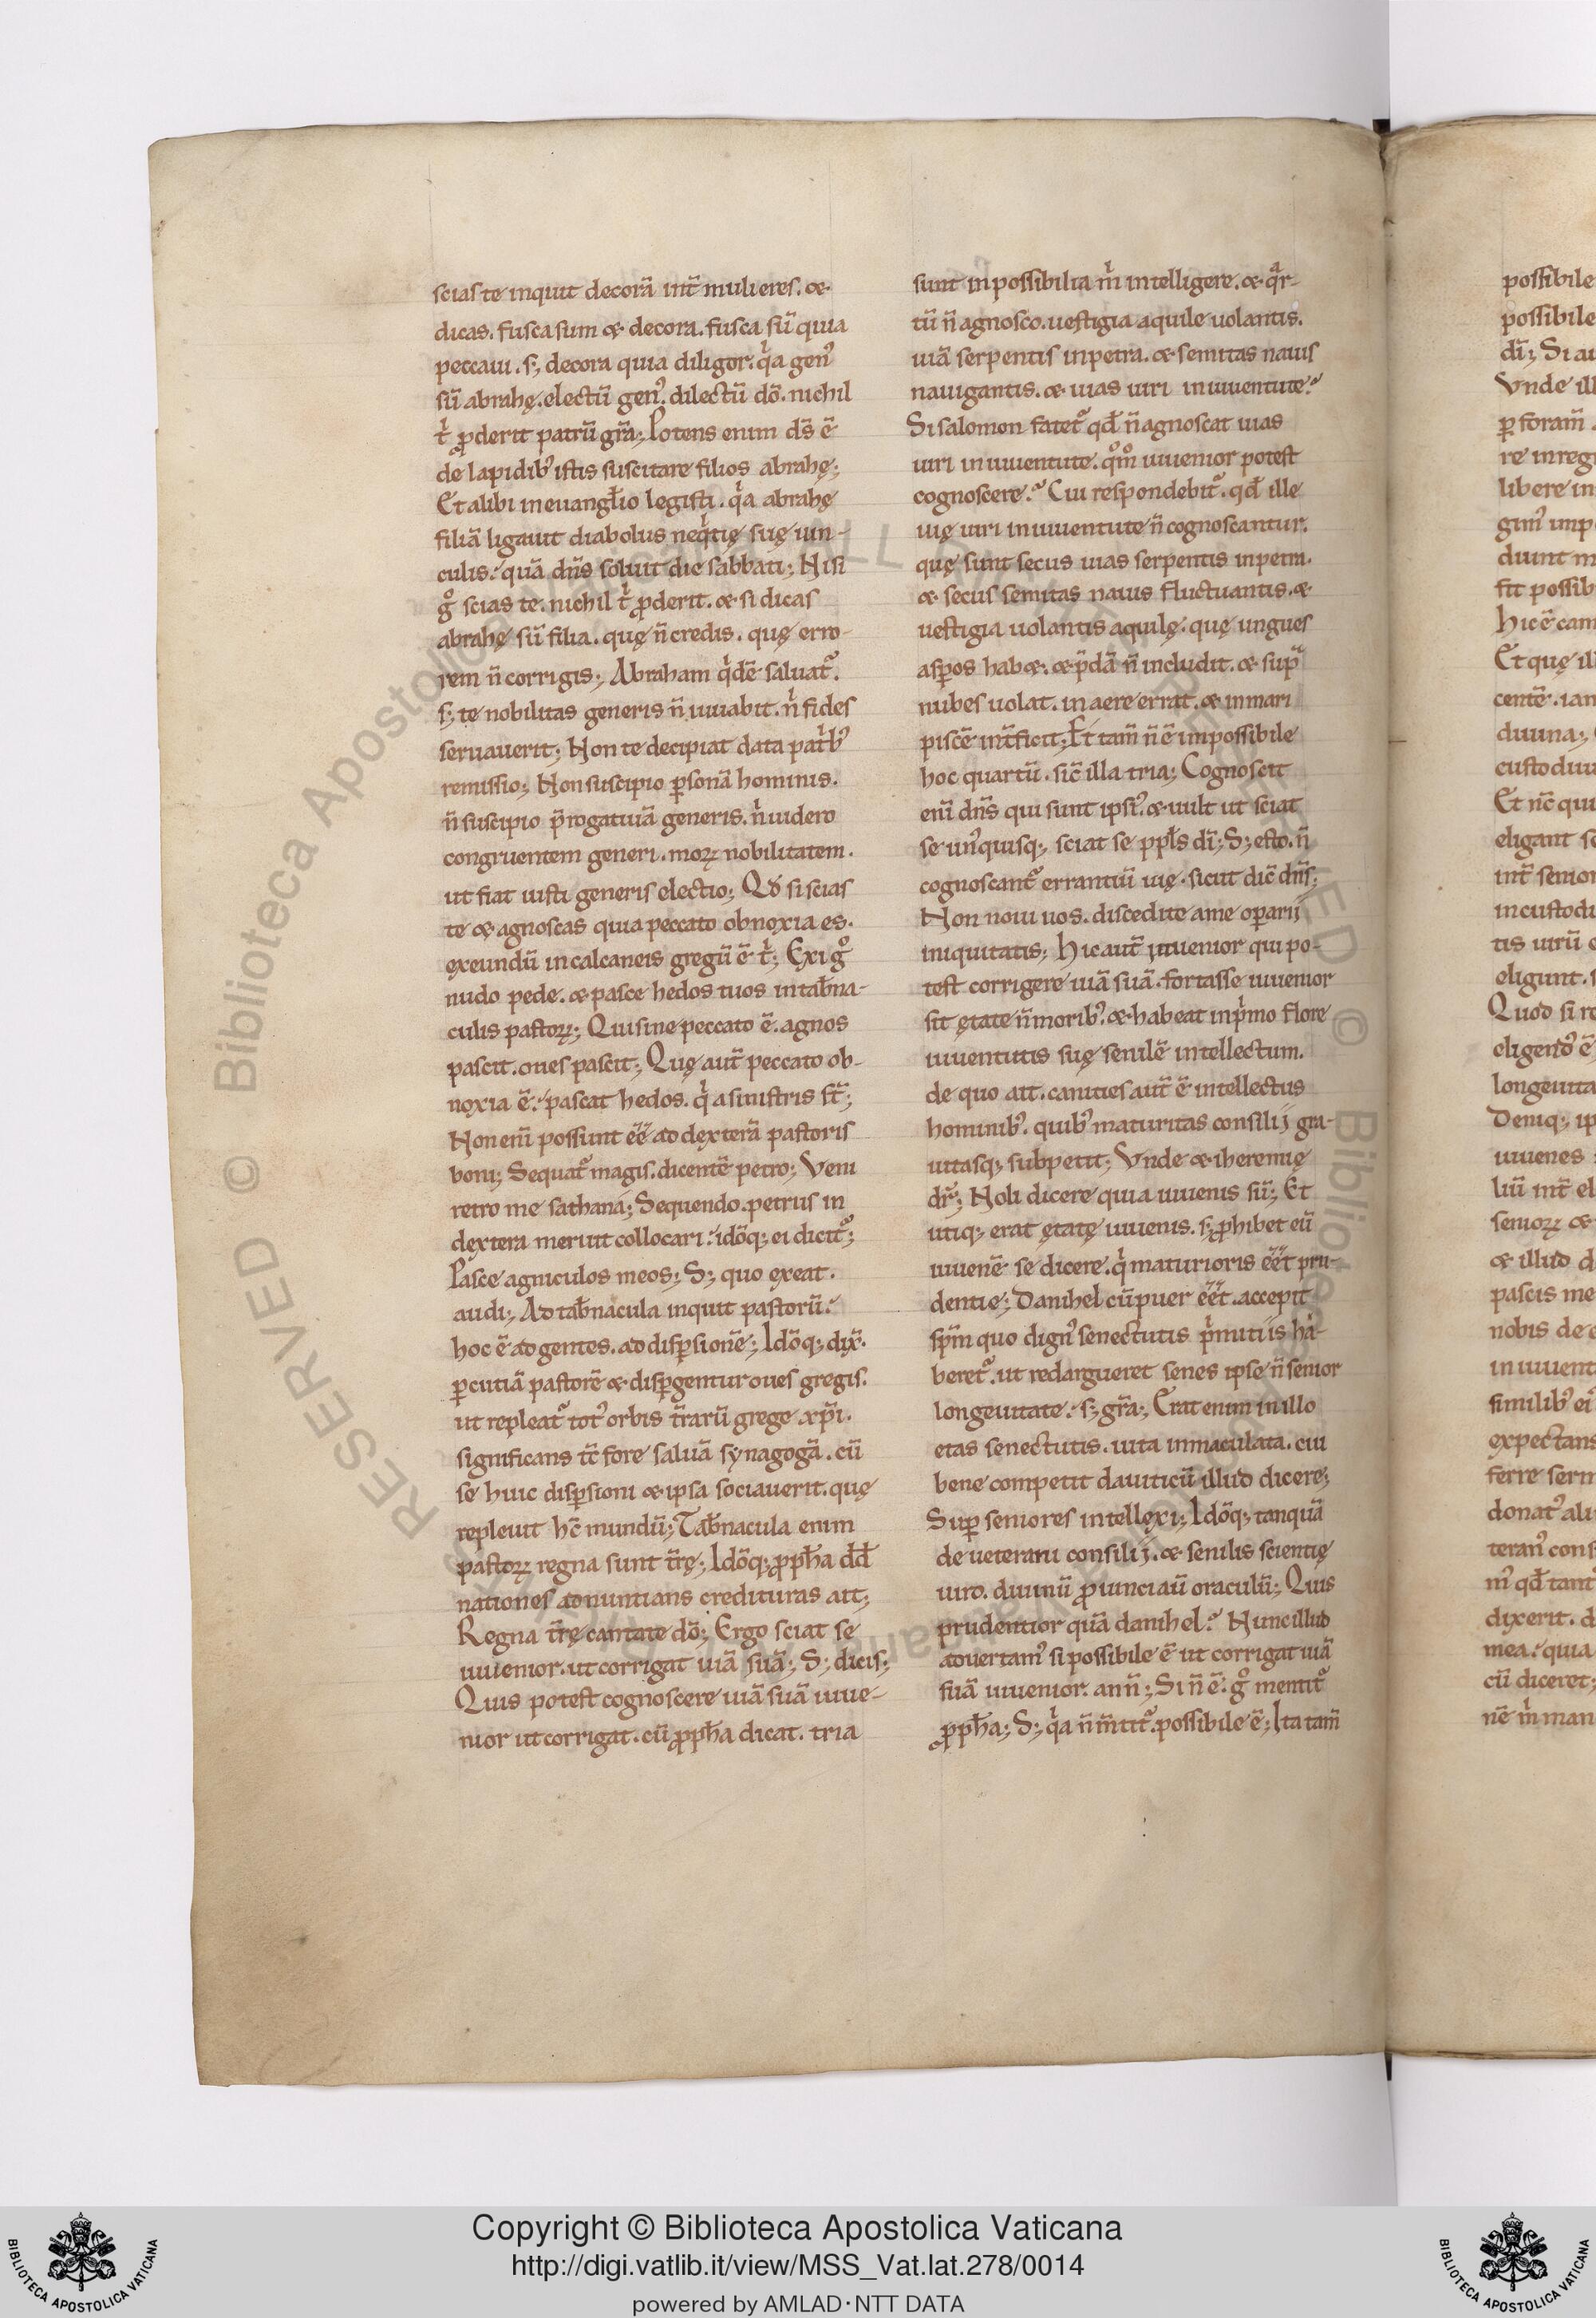 scias te inquit decorā int̄ mulieres. &
dicas. fusca sum & decora. fusca sū quia
peccaui. s; decora quia diligor. qͥa genꝰ
sū abrahę. electū genꝰ. dilectū dō. nichil
tͥ ꝓderit patrū gr̄a; Potens enim ds̄ ē
de lapidibꝰ istis suscitare filios abrahę;
Et alibi in euangl̄io legisti. qͥa abrahę
filiā ligauit diabolus neqͥtię suę uin-
culis. quā dn̄s soluit die sabbati; Nisi
gͦ scias te. nichil tͥ ꝓderit. & si dicas
abrahę sū filia. quę n̄ credis. quę erro-
rem n̄ corrigis; Abraham qͥdē saluat᷑.
s; te nobilitas generis n̄ iuuabit. nͥ fides
seruauerit; Non te decipiat data patͥbꝰ
remissio; Non suscipio ꝑsonā hominis.
n̄ suscipio p̄rogatiuā generis. nͥ uidero
congruentem generi. moꝝ nobilitatem.
ut fiat iusti generis electio; Qđ si scias
te & agnoscas quia peccato obnoxia es.
exeundū in calcaneis gregū ē tͥ; Exi gͦ
nudo pede. & pasce hedos tuos in tab̄na-
culis pastoꝝ; Qui sine peccato ē. agnos
pascit. oues pascit; Quę aut̄ peccato ob-
noxia ē. pascat hedos. qͥ a sinistris st̄;
Non eni᷒ possunt ēē ad dexterā pastoris
boni; Sequat᷑ magis. dicentē petro; Veni
retro me sathana; Sequendo. petrus in
dextera meruit collocari. idōq; ei dicit᷑;
Pasce agniculos meos; S; quo exeat.
audi; Ad tab̄nacula inquit pastorū.
hoc ē ad gentes. ad disꝑsionē; Idōq; dix̄.
ꝑcutiā pastorē & disꝑgentur oues gregis.
ut repleat᷑ totꝰ orbis t̄rarū grege xp̄i.
significans tc̄ fore saluā synagogā. cū
se huic disꝑsioni & ipsa sociauerit. quę
repleuit hc̄ mundū; Tab̄nacula enim
pastoꝝ regna sunt t̄rę; Idōq; ꝓph̄a dđ
nationes adnuntians credituras ait;
Regna t̄rę cantate dō; Ergo sciat se
iuuenior. ut corrigat uiā suā; S; dicis;
Quis potest cognoscere uiā suā iuue-
nior ut corrigat. cū ꝓph̄a dicat. tria
sunt inpossibilia mͥ intelligere. & qͣr-
tū n̄ agnosco. uestigia aquile uolantis.
uiā serpentis in petra. & semitas nauis
nauigantis. & uias uiri in iuuentute?
Si salomon fatet᷑ qđ n̄ agnoscat uias
uiri in iuuentute. qͦmͦ iuuenior potest
cognoscere? Cui respondebit᷑. qđ ille
uię uiri in iuuentute n̄ cognoscantur.
quę sunt secus uias serpentis in petra.
& secus semitas nauis fluctuantis. &
uestigia uolantis aquilę. quę ungues
asꝑos hab&. & p̄dā n̄ includit. & supͣ
nubes uolat. in aere errat. & in mari
piscē int̄ficit; Et tam̄ n̄ ē impossibile
hoc quartū. sic̄ illa tria; Cognoscit
eni᷒ dn̄s qui sunt ipsiꝰ. & uult ut sciat
se unꝰquisq; sciat se ppl̄s dī; S; esto. n̄
cognoscant᷑ errantiū uię. sicut dic̄ dn̄s;
Non noui uos. discedite a me oꝑarij
iniquitatis; Hic aut̄ iuuenior qui po-
test corrigere uiā suā. fortasse iuuenior
sit ętate n̄ moribꝰ. & habeat in pͥmo flore
iuuentutis suę senilē intellectum.
de quo ait. canities aut̄ ē intellectus
hominibꝰ. quibꝰ maturitas consilij gra-
uitasq; subpetit; Vnde & iheremię
dr̄; Noli dicere quia iuuenis sū; Et
utiq; erat ętatę iuuenis. s; ꝓhibet eū
iuuenē se dicere. qͥ maturioris ēēt pru-
dentie; Danihel cū puer ēēt. accepit
sp̄m quo dignꝰ senectutis pͥmitiis ha-
beret᷑. ut redargueret senes ipse n̄ senior
longeuitate. s; gr̄a; Erat enim in illo
etas senectutis. uita inmaculata. cui
bene competit dauiticū illud dicere;
Suꝑ seniores intellexi; Idōq; tanquā
de ueterani consilij. & senilis scientię
uiro. diuinū ꝓnunciaū oraculū; Quis
prudentior quā danihel? Nunc illud
aduertamꝰ si possibile ē ut corrigat uiā
suā iuuenior. an n̄; Si n̄ ē. gͦ mentit᷑
ꝓph̄a; S; qͥa n̄ m̄tit᷑. possibile ē; Ita tam̄
Copyright © Biblioteca Apostolica Vaticana
http://digi.vatlib.it/view/MSS_Vat.lat.278/0014
powered by AMLAD·NTT DATA